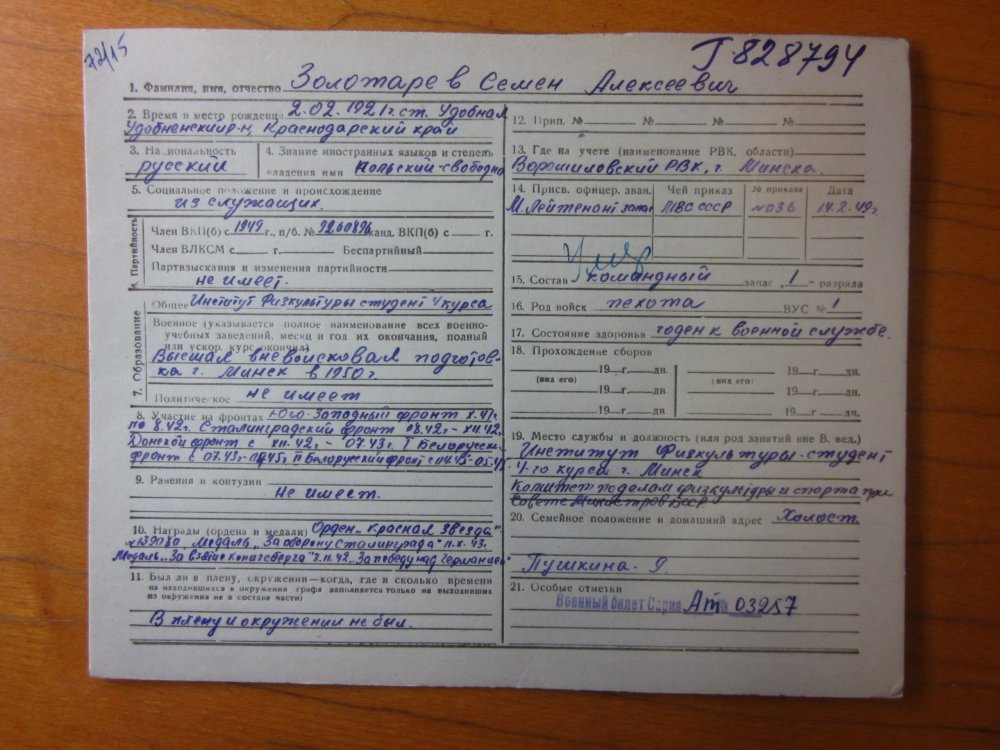 72/15
Т-828794
1. Фамилия, имя, отчество Золотарев Семен Алексеевич
2. Время и место рождения 2.02.1921г. ст. Удобная
Удобненский р-н Краснодарский край
3. Национальность
русский
4. Знание иностранных языков и степень
владения ими Польский-свободно
5. Социальное положение и происхождение
из служащих.
6. Партийность
Член ВКП(б) с 1949 г., п/б. № канд. ВКП(б) с г.
Член ВЛКСМ с г. Беспартийный
Партвзыскания и изменения партийности
не имеет.
7. Образование
Общее Институт Физкультуры студент 4 курса
Военное (указывается полное наименование всех военно-
учебных заведений, месяц и год их окончания, полный
или ускор. курс окончил)
Высшая вневойсковая подготов-
ка г. Минск в 1950г.
Политическое не имеет
8. Участие на фронтах Юго-Западный фронт X.41г.
по 8.42г. Сталинградский фронт 08.42г.-XII.42,
Донской фронт с XII.42, - 07.43г. I Белорусск.
фронт с 07.43г- II Белорусский фронт с 04.45-05.45
9. Ранения и контузии
Не имеет.
10. Награды (ордена и медали) Орден "Красная Звезда"
Медаль "За оборону Сталинграда" 43.
Медаль "За взятие Кенигсберга" "За победу над Германией"
11. Был ли в плену, окружении—когда, где и сколько времени
на находившихся в окружении графа заполняется только на выходивших
из окружения не в составе части)
В плену и окружении не был.
12. Прип. № № № №
13. Где на учете (наименование РВК, области)
Ворошиловский РВК, г. Минска.
14. Присв. офицер. зван. Чей приказ № приказа Дата
М.Лейтенант запас МВС СССР №036 14.2.49г.
15. Состав командный запас „1“ разряда
16. Род войск пехота ВУС № 1
17. Состояние здоровья годен к военной службе.
18. Прохождение сборов
19 г. дн. 19 г. дн.
(вид его) (вид его)
19 г. дн. 19 г. дн.
19 г. дн. 19 г. дн.
19. Место службы и должность (или род занятий вне В. вед.)
Институт Физкультуры-студент
4-го курса г. Минск
Комитет по делам физкультуры и спорта при
Совете Министров БССР
20. Семейное положение и домашний адрес Холост.
Пушкина-9.
21. Особые отметки
Военный билет Серия Ат 03257